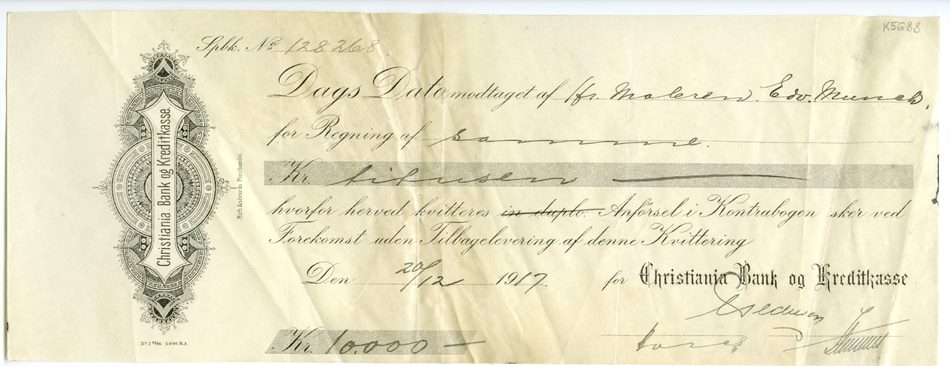 K5688
Spbk. No 128268.
Dags Dato modtaget af Hr. Maleren Edv. Munch,
for Regning af samme.
Kr. titusen
hvorfor herved kvitteres in duplo. Anförsel i Kontrabogen sker ved
Forekomst uden Tilbagelevering af denne Kvittering
Den 20/12 1917. for Christiania Bank og Kreditkasse
Kr. 10.000 —
Christiania Bank og Kreditkasse